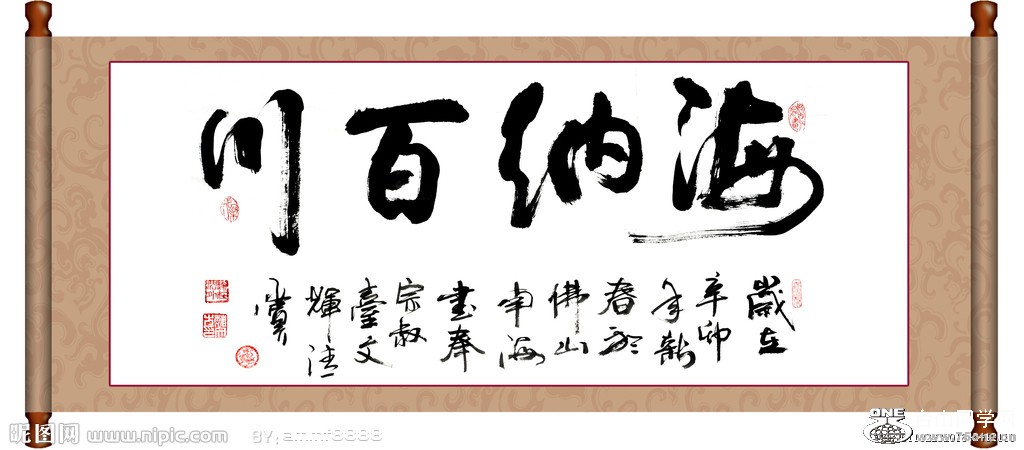 海纳百川
歲在
辛卯
年新
春於
佛山
南海
書奉
宗叔
臺文
輝
昵图网 www.nipic.com
BY:ammf8888
ONE